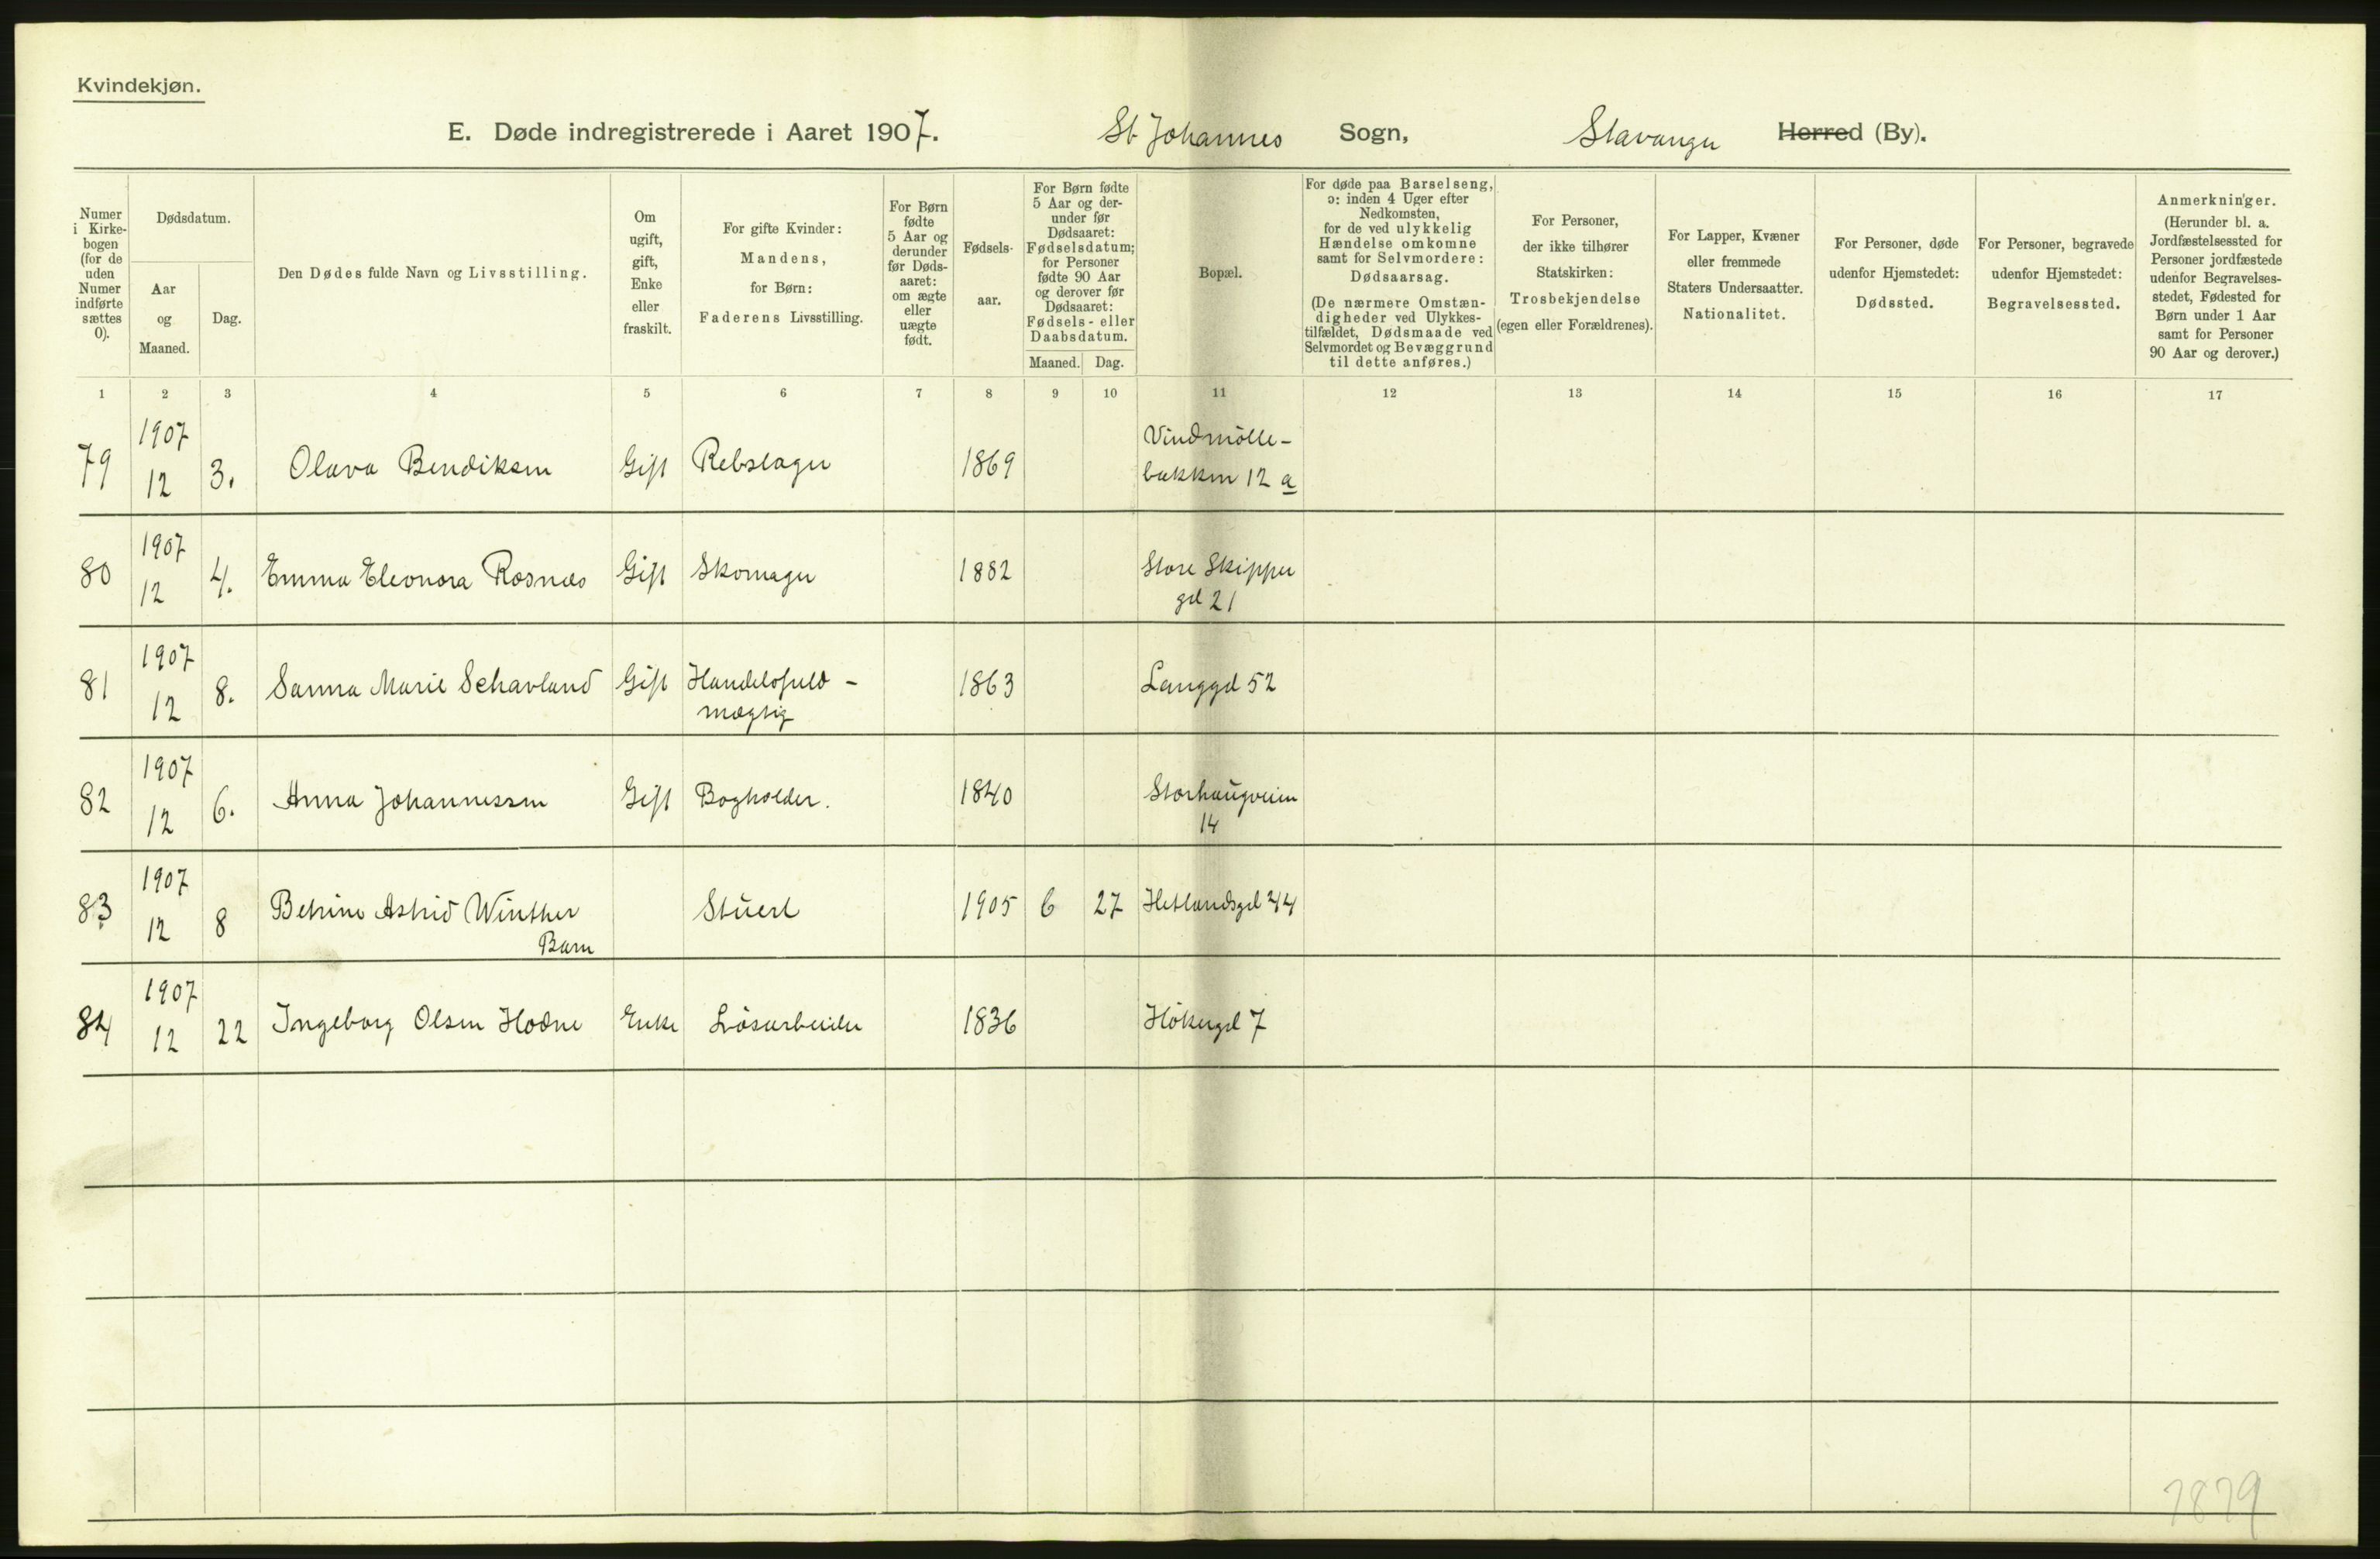 Kvindekjøn.
E. Døde indregistrerede i Aaret 1907. St Johannes Sogn, Stavanger Herred (By).
Numer i Kirkebogen (for de uden Numer indførte sættes 0).
Dødsdatum.
Aar og Maaned.
Dag.
Den Dødes fulde Navn og Livsstilling.
Om ugift, gift, Enke eller fraskilt.
For gifte Kvinder: Mandens, for Børn: Faderens Livsstilling.
For Børn fødte 5 Aar og derunder før Dødsaaret: om ægte eller uægte født.
Fødselsaar.
For Børn fødte 5 Aar og derunder før Dødsaaret: Fødselsdatum; for Personer fødte 90 Aar og derover før Dødsaaret: Fødsels- eller Daabsdatum.
Maaned. Dag.
Bopæl.
For døde paa Barselseng, ɔ: inden 4 Uger efter Nedkomsten, for de ved ulykkelig Hændelse omkomne samt for Selvmordere: Dødsaarsag.
(De nærmere Omstændigheder ved Ulykkestilfældet, Dødsmaade ved Selvmordet og Bevæggrund til dette anføres.)
For Personer, der ikke tilhører Statskirken: Trosbekjendelse (egen eller Forældrenes).
For Lapper, Kvæner eller fremmede Staters Undersaatter. Nationalitet.
For Personer, døde udenfor Hjemstedet: Dødssted.
For Personer, begravede udenfor Hjemstedet: Begravelsessted.
Anmerkninger.
(Herunder bl. a. Jordfæstelsessted for Personer jordfæstede udenfor Begravelsesstedet, Fødested for Børn under 1 Aar samt for Personer 90 Aar og derover.)
1 2 3 4 5 6 7 8 9 10 11 12 13 14 15 16 17
79 1907 12 3. Olava Bendiksen Gift Rebslager 1869 Vindmölle-
bakken 12 a
80 1907 12 4. Emma Eleonora Rosnæs Gift Skomager 1882 Store Skipper
gd 21
81 1907 12 8. Sanna Marie Schavland Gift Handelsfuld-
mægtig 1863 Langgd 52
82 1907 12 6. Anna Johannessen Gift Bogholder. 1840 Storhaugveien
14
83 1907 12 8 Betrine Astrid Winther
Barn Stuert 1905 6 27 Hetlandsgd 44
84 1907 12 22 Ingeborg Olsen Hodne Enke Lösarbeider 1836 Hökergd 7